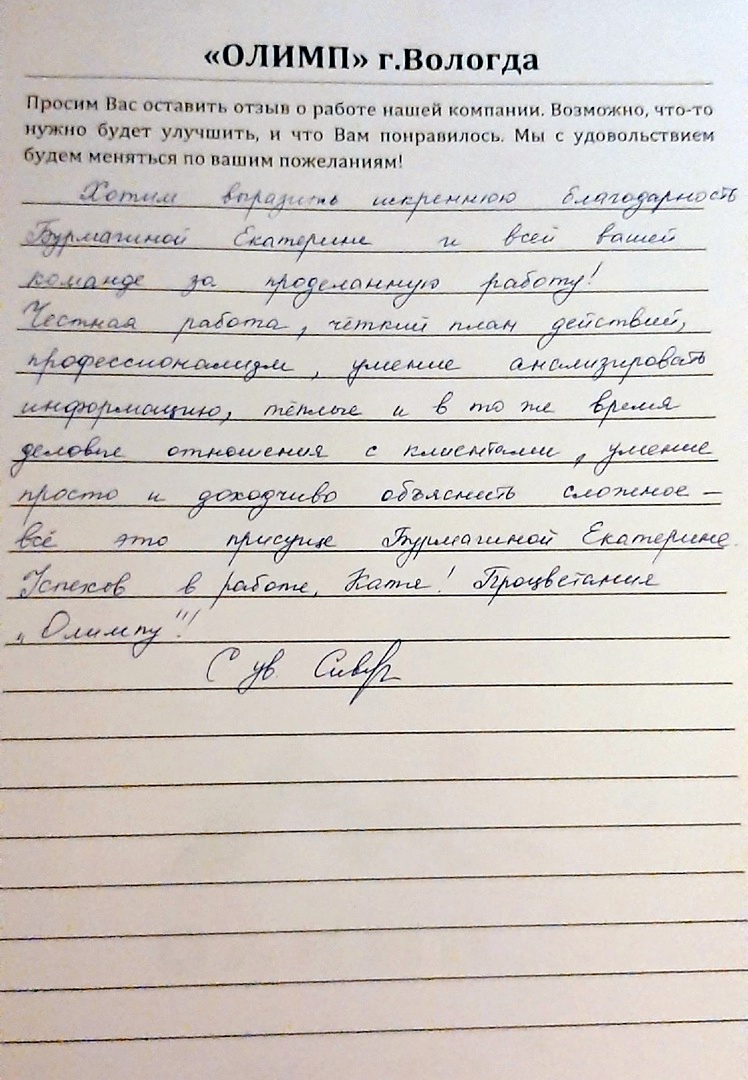 «ОЛИМП» г.Вологда
Просим Вас оставить отзыв о работе нашей компании. Возможно, что-то
нужно будет улучшить, и что Вам понравилось. Мы с удовольствием
будем меняться по вашим пожеланиям!
Хотим выразить искреннюю благодарность
Бурмагиной Екатерине и всей вашей
команде за проделанную работу!
Честная работа, чёткий план действий,
профессионализм, умение анализировать
информацию, тёплые и в то же время
деловые отношения с клиентами, умение
просто и доходчиво объяснить сложное –
всё это присуще Бурмагиной Екатерине.
Успехов в работе, Катя! Процветания
„Олимпу"!
С ув.